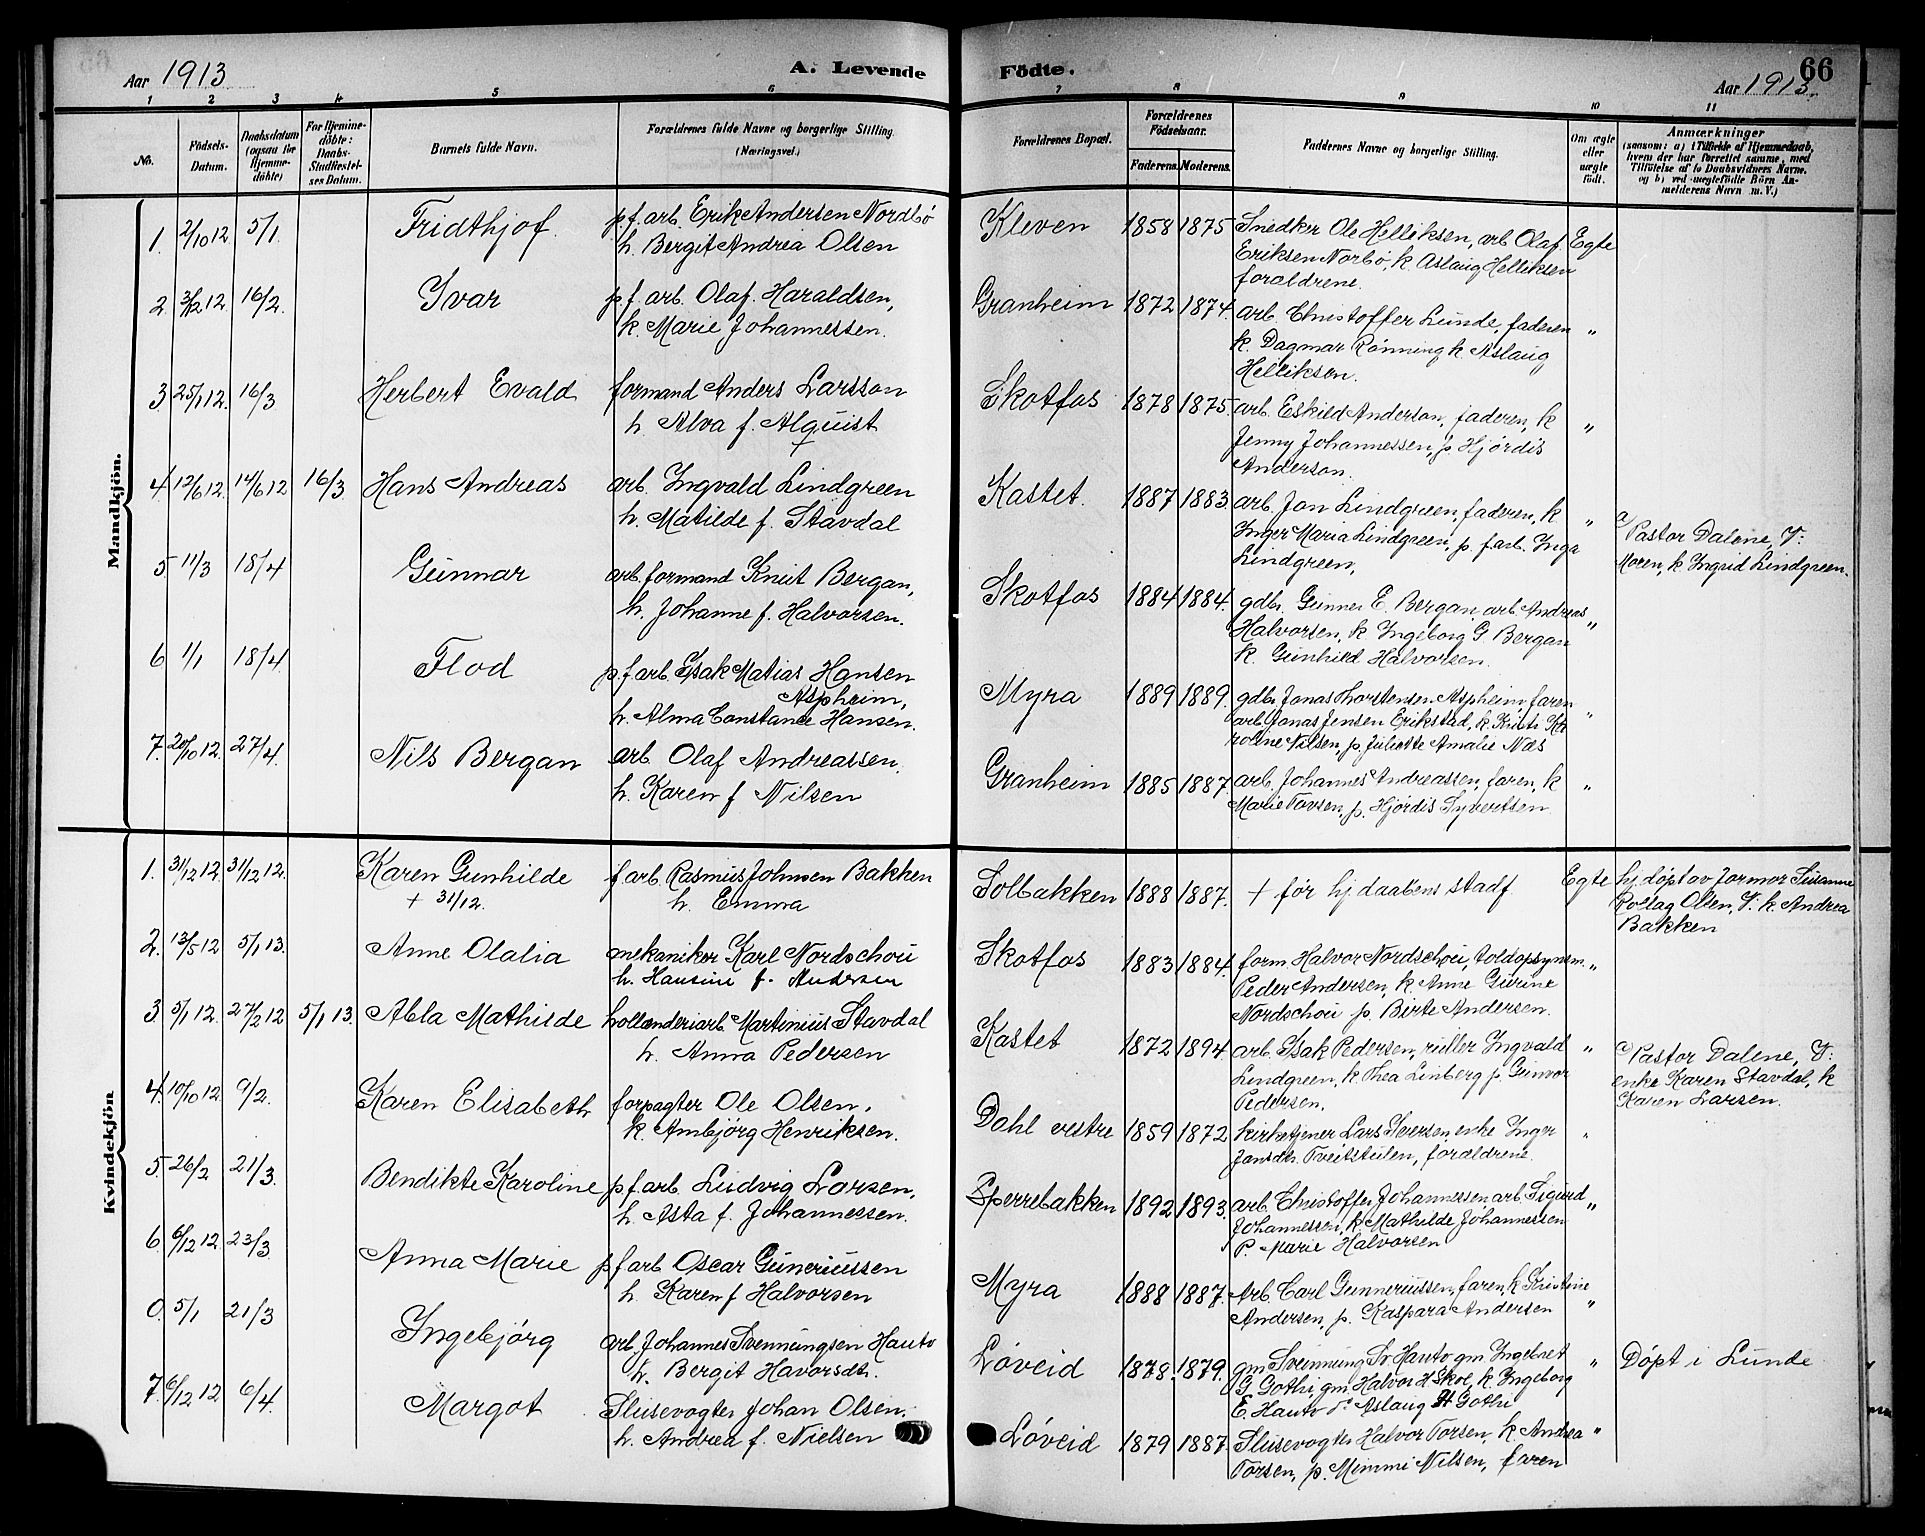 Aar 1913
A. Levende
1 2 3 4 5 6
No.
Födsels-Datum.
Daabsdatum (ogsaa for Hjemme-döbte)
For Hjemme-döbte: Daabs-Stadfestel-ses Datum.
Barnets fulde Navn.
Forældrenes fulde Navne og borgerlige Stilling. (Næringsvei.)
Mandkjön.
1. 2/10 12 5/1 Fridthjof p.f. arb. Erik Andersen Nordbö
h. Bergit Andrea Olsen
2. 12. 16/2. Ivar p.f. arb. Olaf Haraldsen,
k. Marie Johannessen.
3 25/1 12. 16/3 Herbert Evald formand Anders Larsson
h. Alva f. Alquist
4 12/6 12. 14/6 12 16/3 Hans Andreas arb. Ingvald Lindgreen
h. Matilde f. Stavdal
5 11/3 18/4 Gunnar arb. formand Knut Bergan,
h. Johanne f. Halvorsen.
6 1/1 18/4 Flod p.f. arb. Isak Matias Hansen
Aspheim,
h. Alma Constance Hansen.
7. 20/10 12. 27/4. Nils Bergan arb. Olaf Andreassen.
h. Karen f Nilsen
Kvindekjön
1. 31/12 12. 31/12 12. Karen Gunhilde f. arb. Rasmus Johnsen Bakken
+ 31/12. h. Emma
2. 13/5 12 5/1 13. Anne Olalia mekaniker Karl Nordschou
h. Hansine f. Andersen
3. 5/1 12. 27/2 12 5/1 13. Abla Mathilde hollænderiarb. Martinius Stavdal
h. Anna Pedersen
4. 10/10 12 9/2. Karen Elisabeth forpagter Ole Olsen.
k. Ambjörg Henriksen.
5. 26/2 21/3. Bendikte Karoline p.f. arb. Ludvig Larsen,
h. Asta f. Johannessen.
6. 6/12 12. 23/3. Anna Marie p.f. arb. Oscar Guneriussen
h. Karen f Halvorsen
0. 5/1 21/3 Ingebjörg arb. Johannes Svennungsen Hauto
h. Bergit Havorsdt.
7. 6/12 12 6/4. Margot Slusevogter Johan Olsen.
h. Andrea f. Nielsen
Födte.
66
Aar 1913.
7 8 9 10 11
Forældrenes Bopæl.
Forældrenes Födselsaar.
Faderens. Moderens.
Faddernes Navne og borgerlige Stilling.
Om ægte eller uægte födt.
Anmærkninger
(saasom: a) i Tilfælde af Hjemmedaab, hvem der har forrettet samme, med Tilföielse af to Daabsvidners Navne. og b) ved uægtefödte Börn An-melderens Navn m. V.)
Kleven 1858 1875 Snedker Ole Helliksen, arb Olaf Egte
Eriksen Norbö, k. Aslaug Helliksen
foraldrene.
Granheim 1872 1874. arb. Christoffer Lunde, faderen "
k. Dagmar Rönning k Aslaug
Helliksen.
Skotfos 1878 1875 arb. Eskild Anderson, faderen, k "
Jenny Johannessen, p. Hjördis
Anderson.
Kastet. 1887 1883. arb. Jon Lindgreen, faderen, k " a) Pastor Dalene, V:
Inger Maria Lindgreen, p. f. arb. Inga Moren, k Ingrid Lindgreen.
Lindgreen,
Skotfos 1884 1884. gdbr. Gunner E. Bergan, arb. Andreas "
Halvorsen, k Ingeborg G. Bergan
k. Gunhild Halvorsen.
Myra 1889 1889. gdbr Jonas Thorstensen Aspheim, faren "
arb. Jonas Jensen Erikstad, k. Kirsti Ka
roline Nilsen, p. Juliette Amalie Næs
Granheim 1885 1887. arb. Johannes Andreassen, faren, k "
Marie Tovsen, p. Hjördis Syvertsen
Solbakken 1888 1887. + för hj daabens stadf Egte hj. döpt av Jormor Susanne
Rollag Olsen, V. k. Andrea
Bakken
Skotfos 1883 1884. form. Halvor Nordschou, toldopsynsm. "
Peder Andersen, k. Anne Gurine
Nordschou p. Birte Andersen.
Kastet 1872 1894 arb. Isak Pedersen, ruller Ingvald " a) Pastor Dalene, V:
Lindgreen, k. Thea Linberg p. Gunvor enke Karen Stavdal, k
Pedersen. Karen Larsen.
Dahl vestre 1859 1872 kirketjener Lars Iversen, enke Inger "
Jansdt. Tveitstulen, foraldrene.
Sperrebakken 1892 1893. arb. Christoffer Johannessen arb. Sigurd "
Johannessen, k. Mathilde Johannessen
P. Marie Halvorsen
Myra 1888 1887. Arb. Carl Gunneriussen, faren, k Kristine
Andersen, p. Kaspara Andersen "
Löveid 1878. 1879. gm. Svennung Sv. Hauto gm. Ingebret " Döpt i Lunde
G. Gothi, gm. Halvor H Skoe, k. Ingeborg
E. Hauto Aslaug H Gothi
Löveid 1879 1887. Slusevogter Halvor Torsen, k. Andrea "
Torsen, p. Mimmi Nilsen, faren